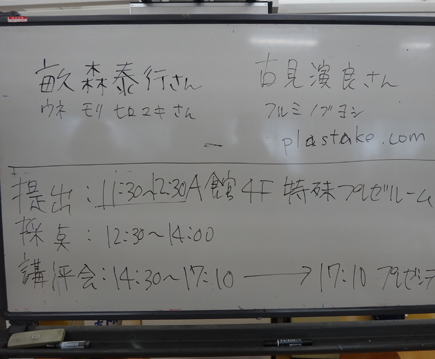 畝森泰行さん
ウネ モリ ヒロユキ さん
古見演良さん
フルミノブヨシ
plastake.com
提出：11:30~12:30 A館 4F 特殊プレゼルーム
採点：12:30~14:00
講評会：14:30~17:10 → 17:10 プレゼンテ